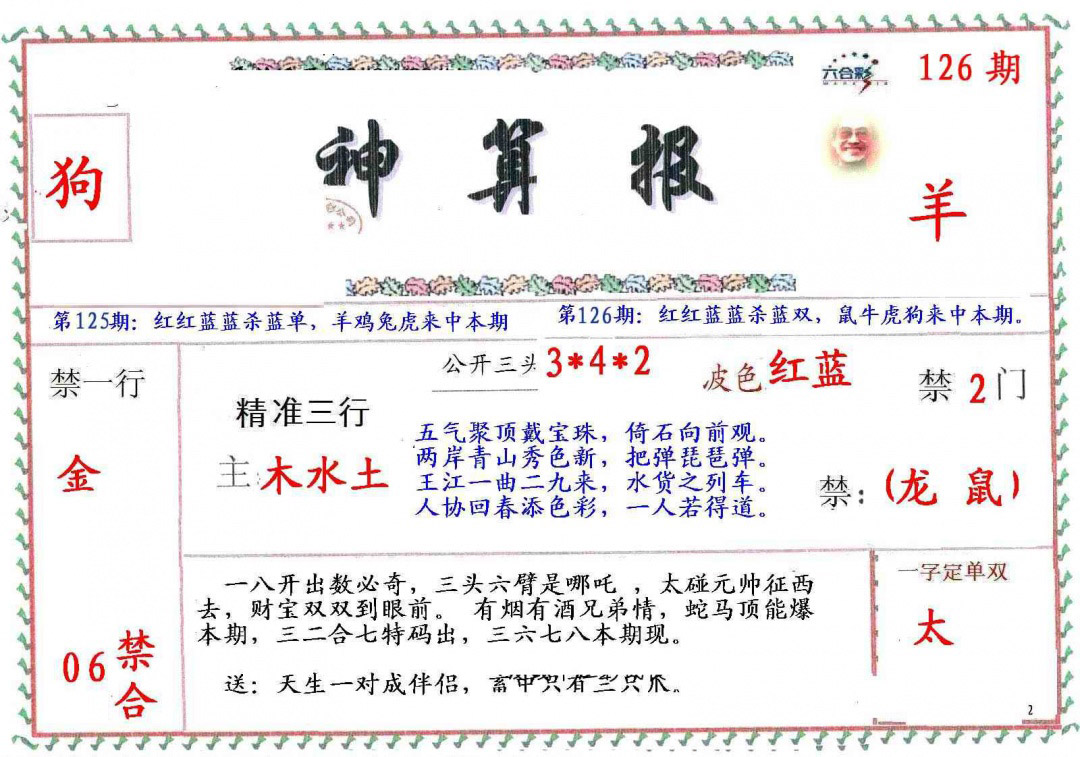 六合彩
126 期
狗
神算报
羊
第125期：红红蓝蓝杀蓝单，羊鸡兔虎来中本期
第126期：红红蓝蓝杀蓝双，鼠牛虎狗来中本期。
禁一行
金
06 禁合
公开三头 3*4*2
波色 红蓝
精准三行
主：木水土
五气聚顶戴宝珠，倚石向前观。
两岸青山秀色新，把弹琵琶弹。
王江一曲二九来，水货之列车。
人协回春添色彩，一人若得道。
禁 2 门
禁：(龙 鼠)
一八开出数必奇，三头六臂是哪吒 ，太碰元帅征西
去，财宝双双到眼前。 有烟有酒兄弟情，蛇马顶能爆
本期，三二合七特码出，三六七八本期现。
送：天生一对成伴侣，
一字定单双
太
2